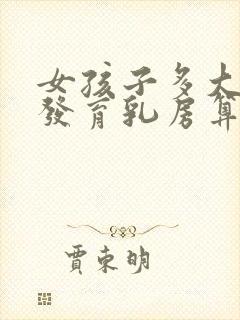 女孩子多大
發育乳房算
賈東明